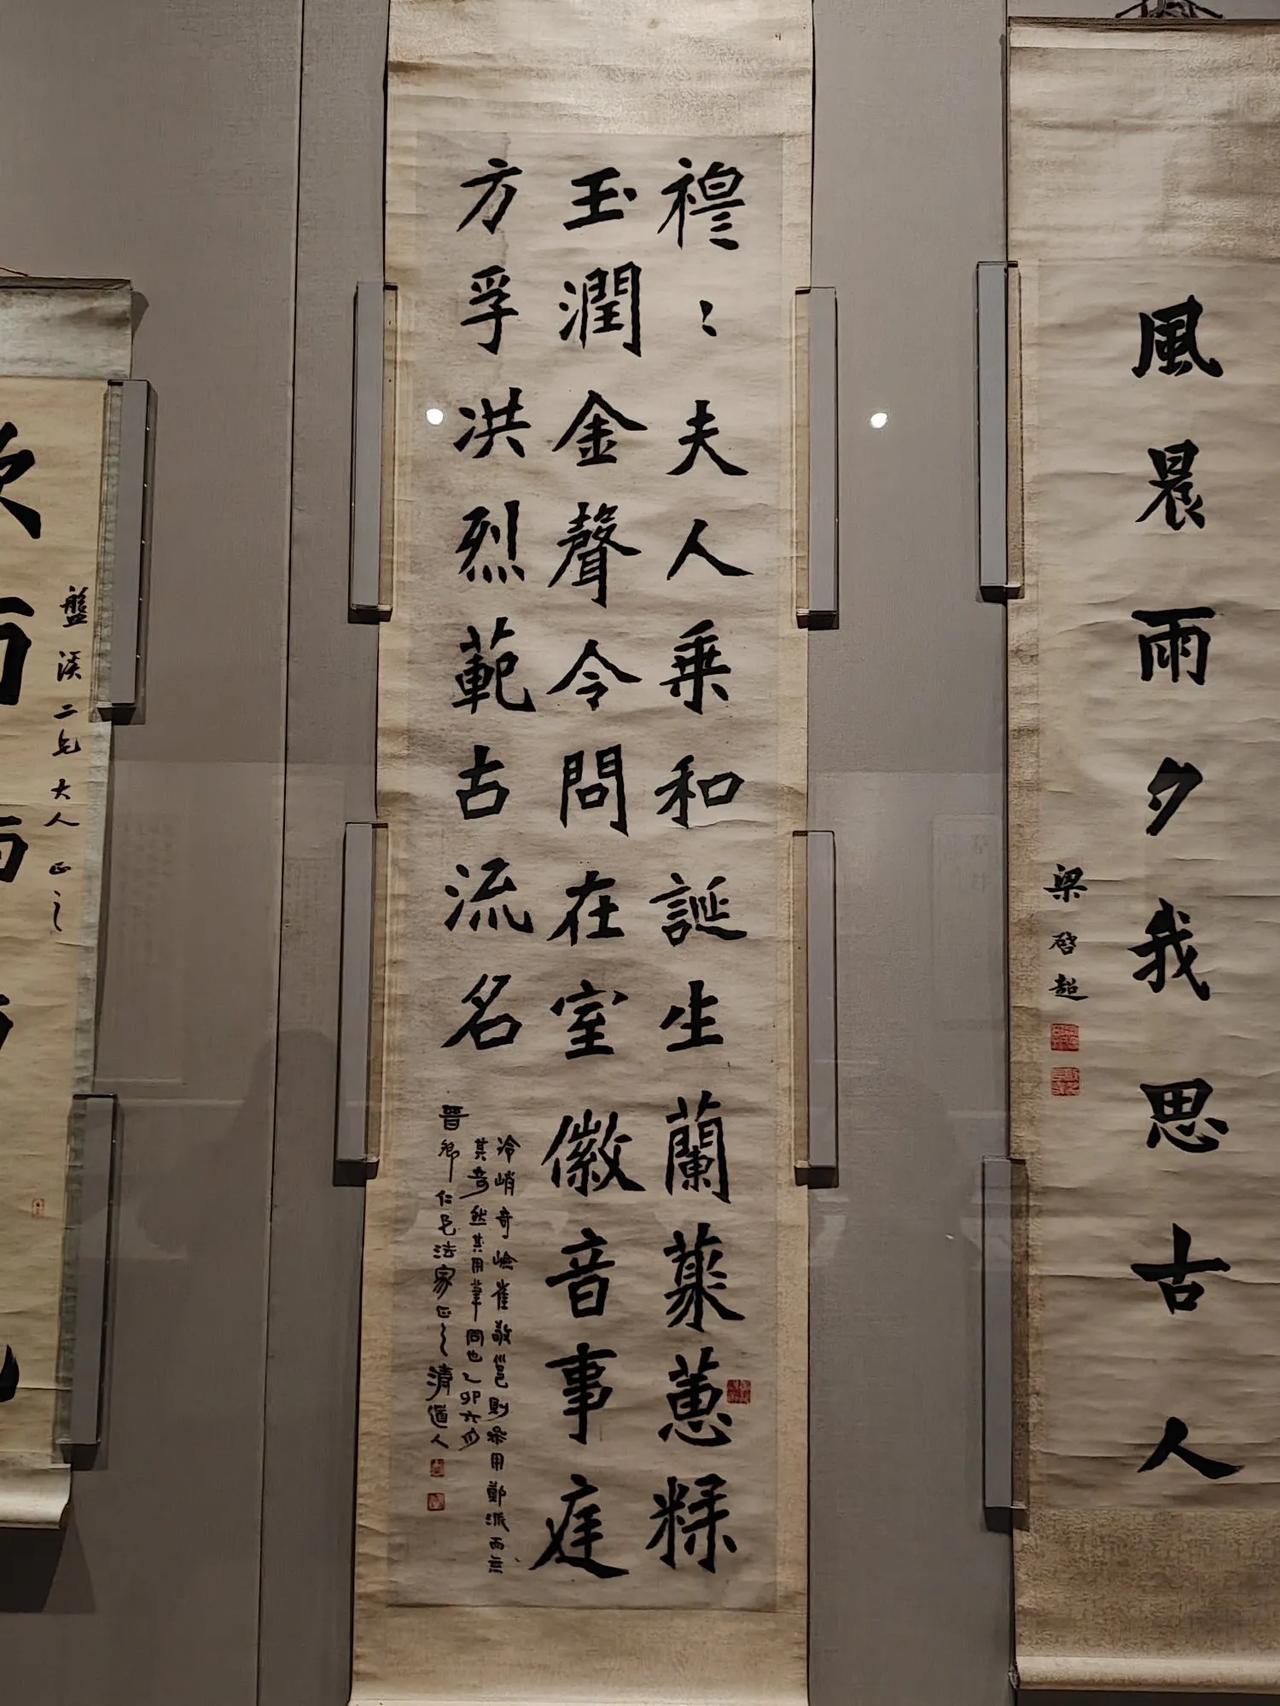 風晨雨夕我思古人
梁啓超
穆〻夫人乘和誕生蘭蒸蕙糅
玉潤金聲令問在室徽音事庭
方孚洪烈範古流名
冷峭奇嶮崔敬邕則參用鄭派而無
其奇然其用筆同也乙卯六月
晋卿仁兄法家正之清道人
盤溪二兄大人正之